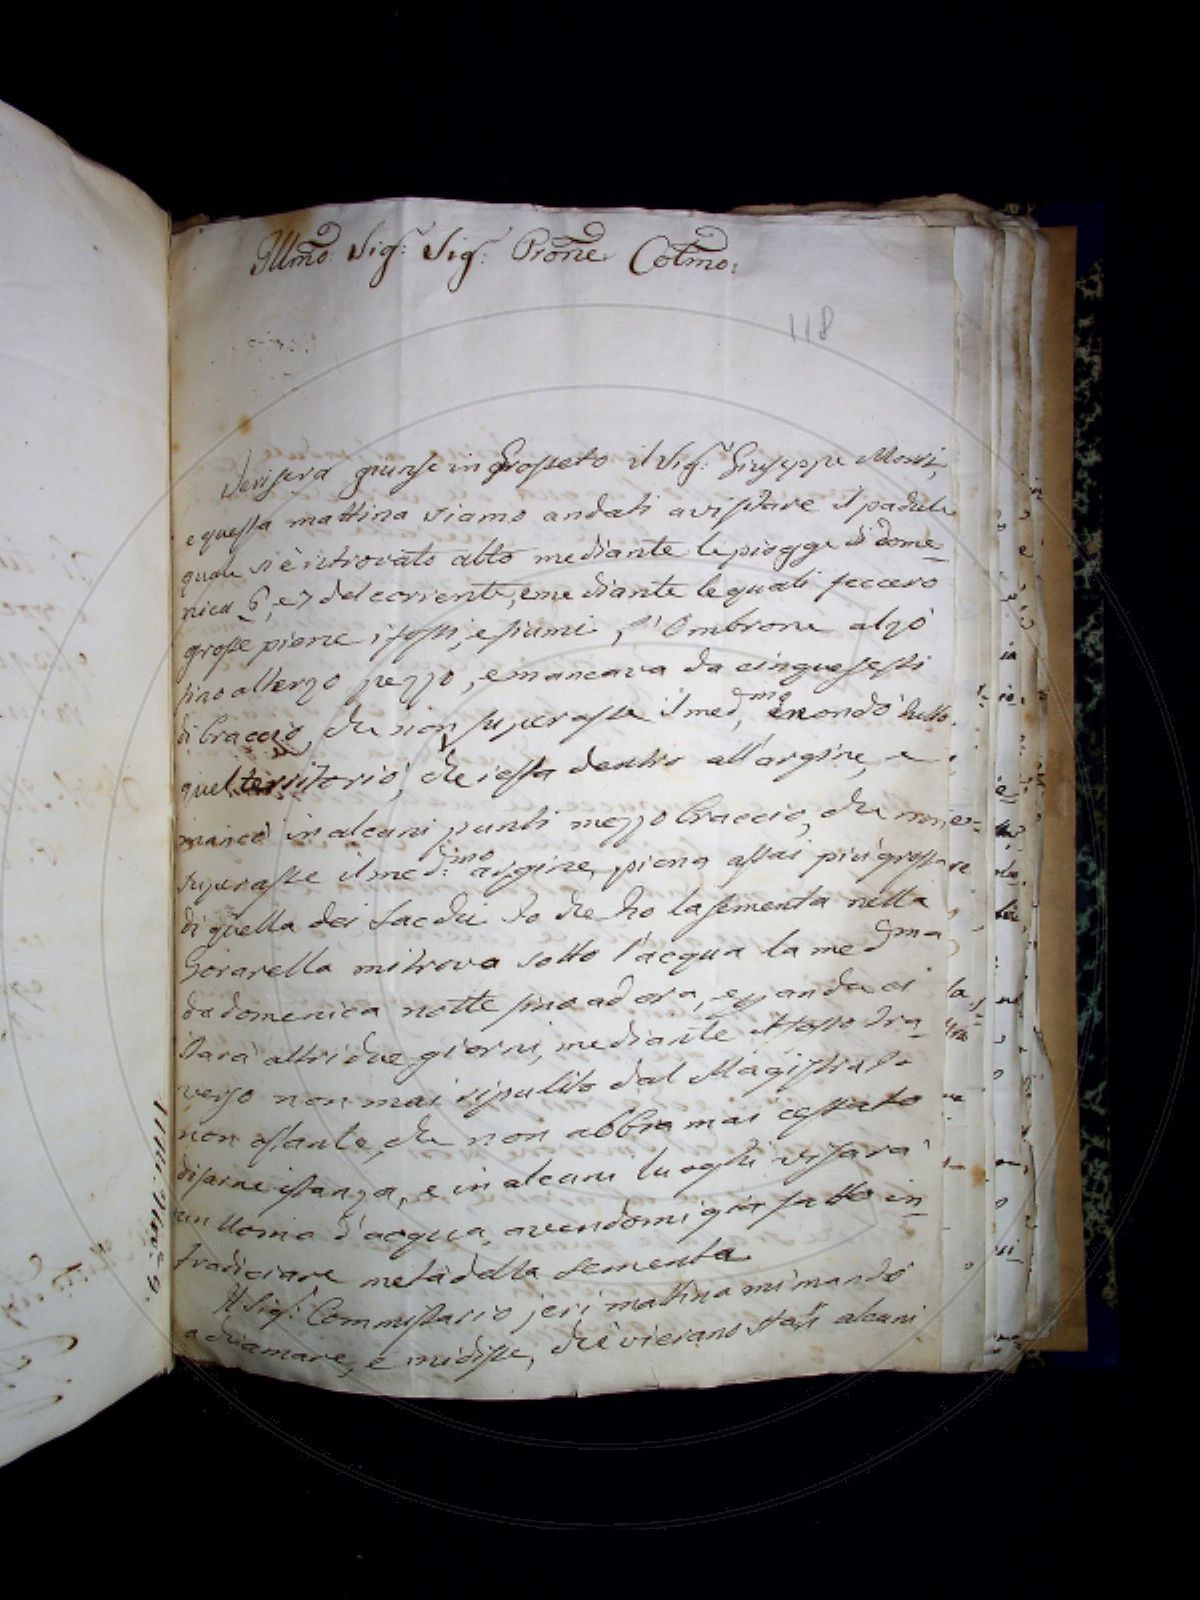 Illmo Sig.r Sig.r Prone Colmo:
118
Jerisera giunse in Grosseto il Sig.r Giuseppe Mossi,
e questa mattina siamo andati a visitare il padule
quale si è ritrovato alto mediante le piogge di dome-
nica 6, e 7 del corrente, e mediante le quali feccero
grosse piene i fossi, e fiumi, l'Ombrone alzò
sino al terzo pezzo, e mancava da cinque sesti
di braccio, che non superasse il med.mo, inondò tutto
quel territorio, che resta dentro all'argine, e
mancò in alcuni punti mezzo braccio, che non
superasse il med.mo argine, piena assai più grossa
di quella dei Io che ho la sementa nella
Gorarella mi trovo sotto l'acqua la medma
da domenica notte sino ad ora, e anda ci
sarà altri due giorni, mediante il fosso Tra-
verso non mai ripulito dal Magistrato
non ostante, che non abbia mai cessato
di farne istanza, e in alcuni luoghi vi sarà
un Uomo d'acqua, avendomi già fatto in-
fradiciare metà della sementa
Il Sig.r Commissario jeri mattina mi mandò
a chiamare, e mi disse, che vi erano stati alcuni